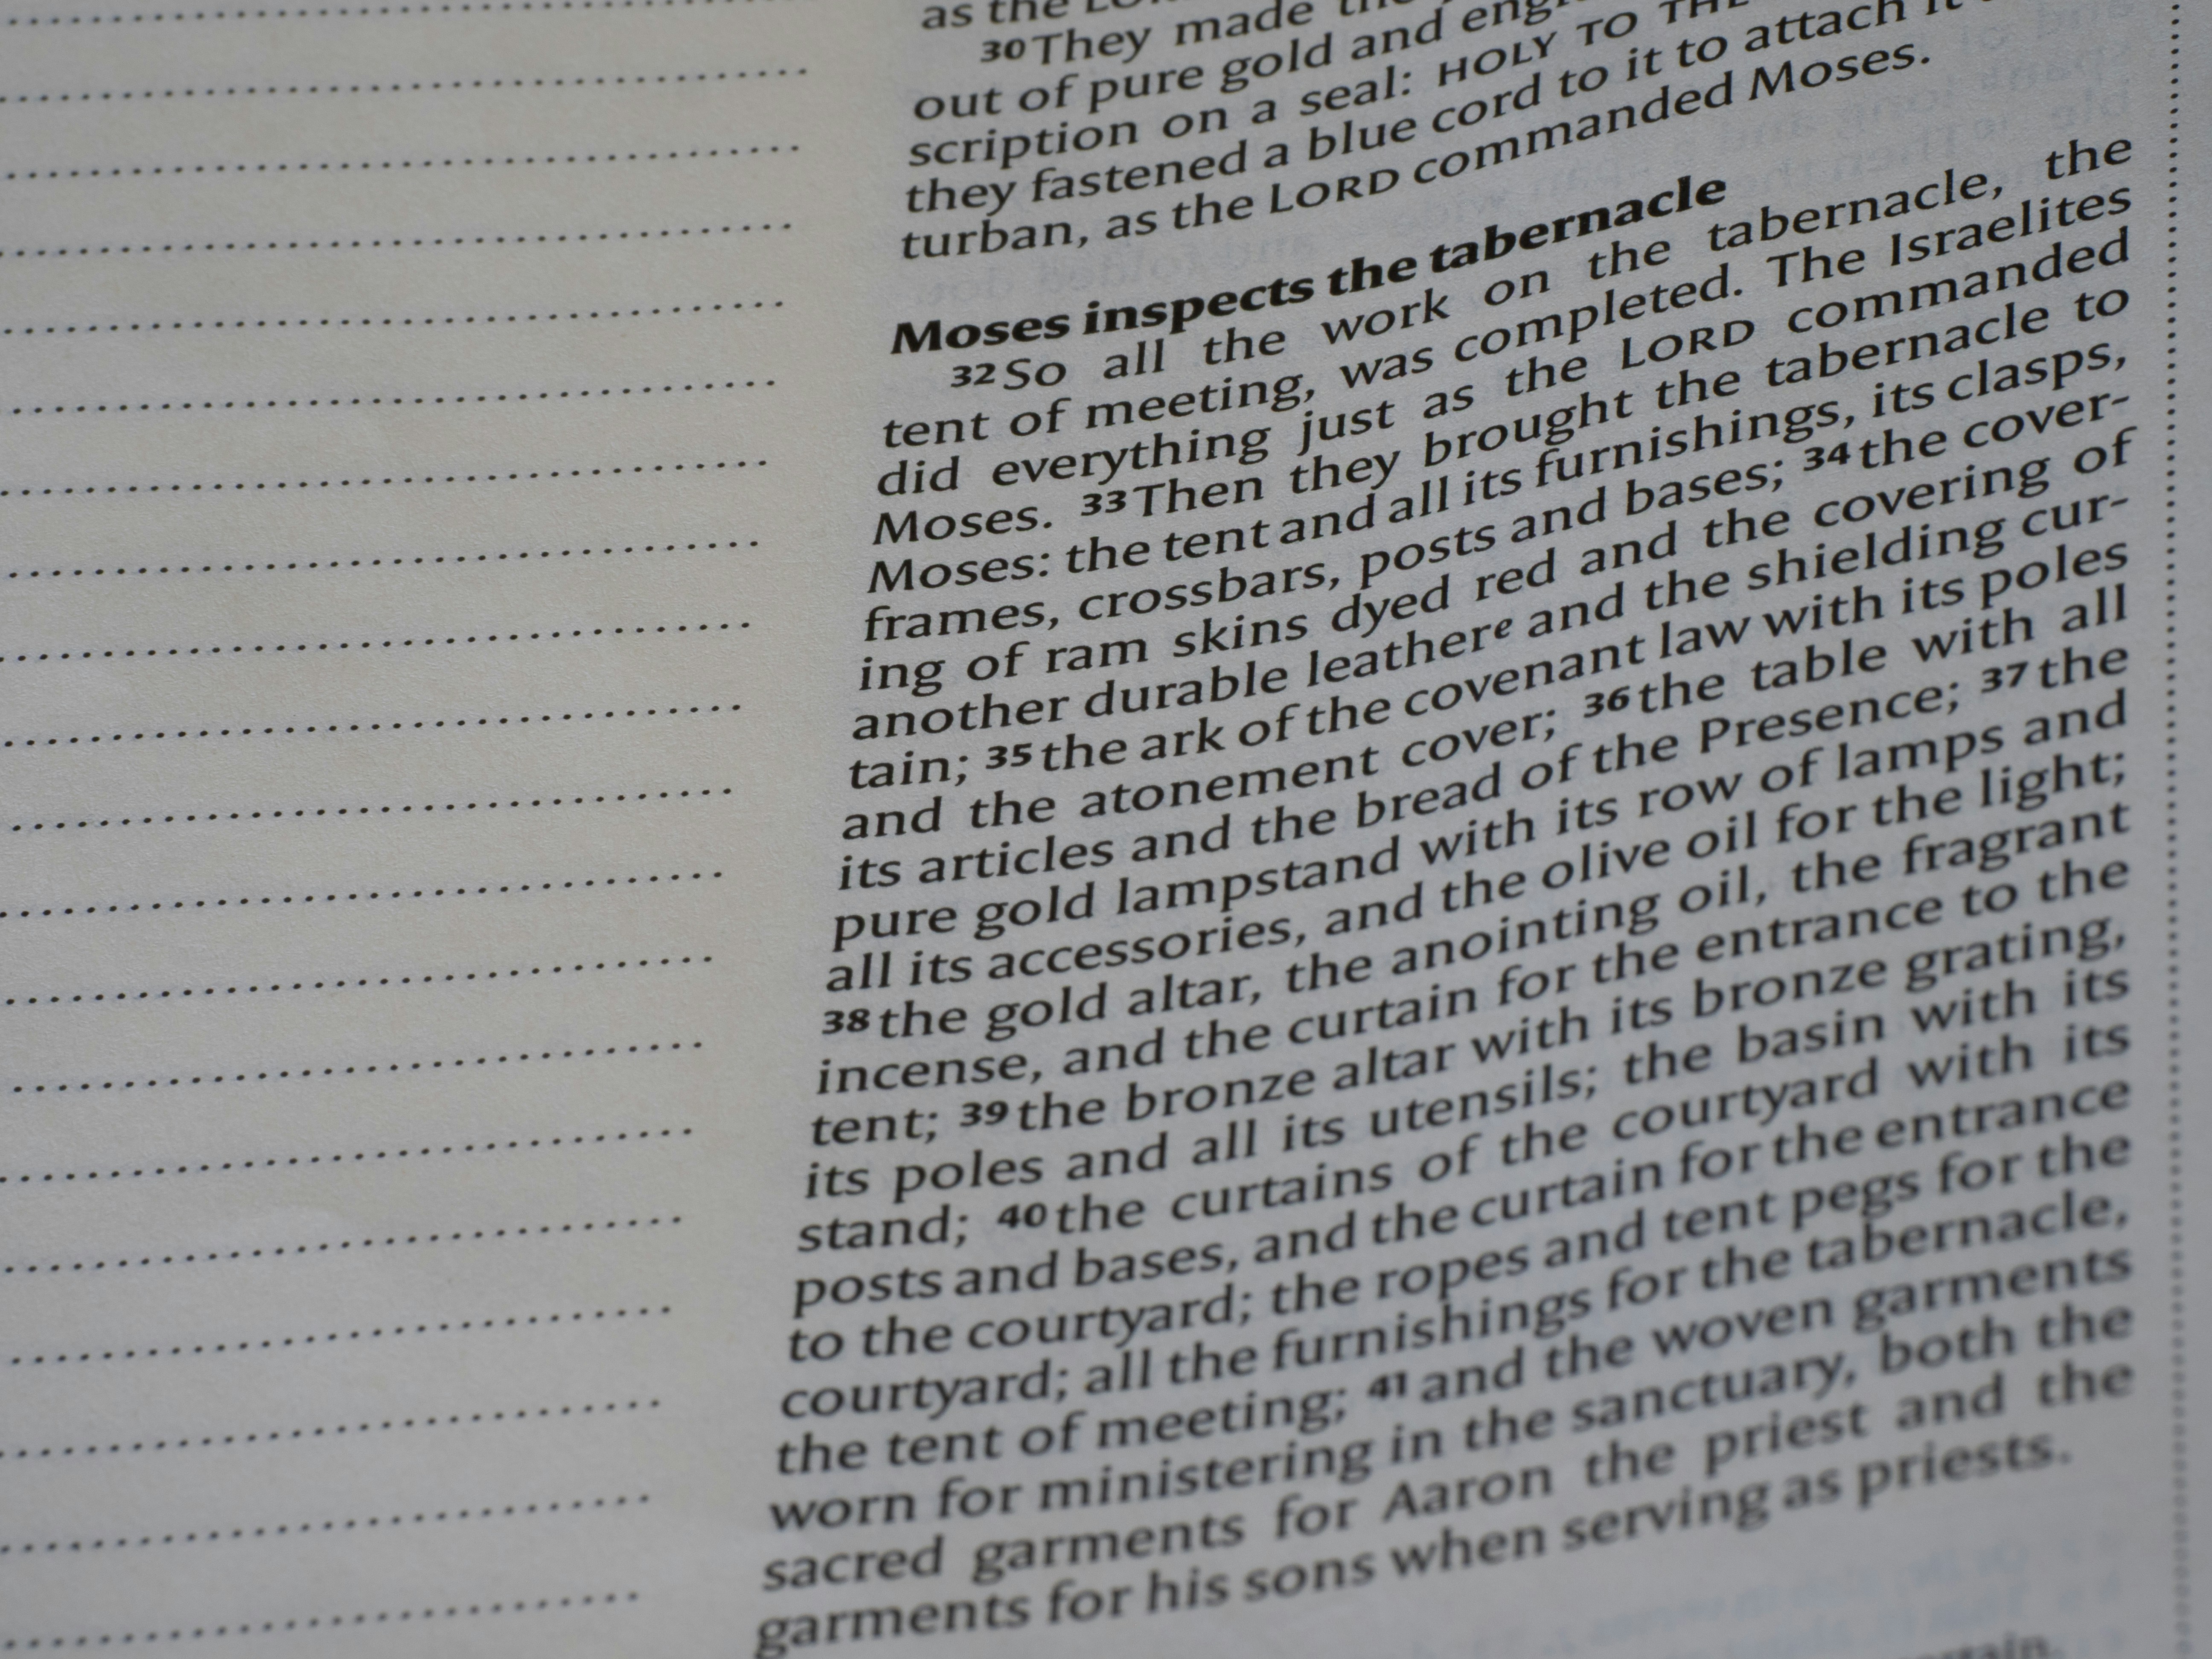 as the
30They made
out of pure gold and
scription on a seal: HOLY TO THE
they fastened a blue cord to it to attach it
turban, as the LORD commanded Moses.
Moses inspects the tabernacle
32So all the work on the tabernacle, the
tent of meeting, was completed. The Israelites
did everything just as the LORD commanded
Moses. 33Then they brought the tabernacle to
Moses: the tent and all its furnishings, its clasps,
frames, crossbars, posts and bases; 34the cover-
ing of ram skins dyed red and the covering of
another durable leathere and the shielding cur-
tain; 35the ark of the covenant law with its poles
and the atonement cover; 36the table with all
its articles and the bread of the Presence; 37the
pure gold lampstand with its row of lamps and
all its accessories, and the olive oil for the light;
38the gold altar, the anointing oil, the fragrant
incense, and the curtain for the entrance to the
tent; 39the bronze altar with its bronze grating,
its poles and all its utensils; the basin with its
stand; 40the curtains of the courtyard with its
posts and bases, and the curtain for the entrance
to the courtyard; the ropes and tent pegs for the
courtyard; all the furnishings for the tabernacle,
the tent of meeting; 41and the woven garments
worn for ministering in the sanctuary, both the
sacred garments for Aaron the priest and the
garments for his sons when serving as priests.